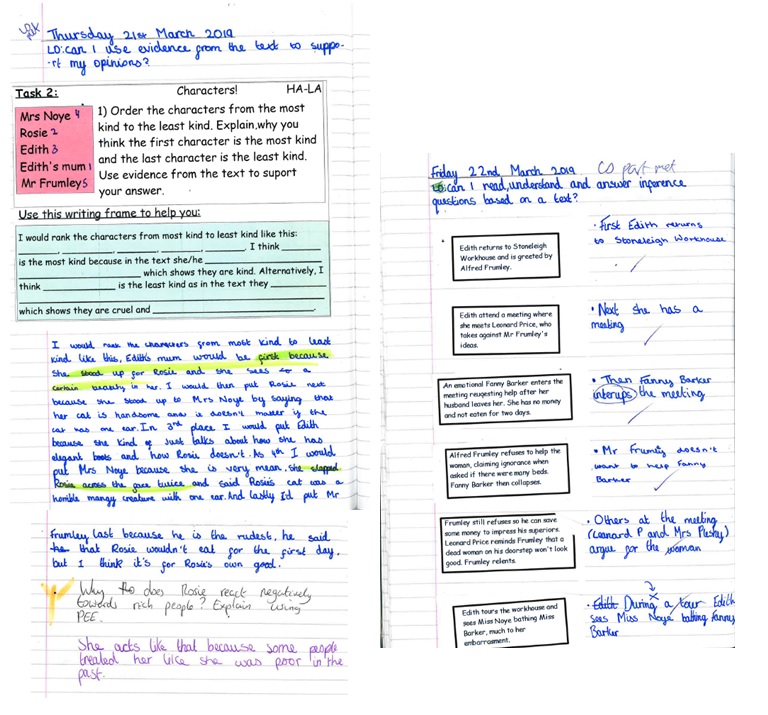 Thursday 21st March 2019
LO: can I use evidence from the text to suppo-
-rt my opinions?
Task 2:
Characters!
HA-LA
Mrs Noye 4
Rosie 2
Edith 3
Edith's mum 1
Mr Frumley 5
1) Order the characters from the most
kind to the least kind. Explain,why you
think the first character is the most kind
and the last character is the least kind.
Use evidence from the text to suport
your answer.
Use this writing frame to help you:
I would rank the characters from most kind to least kind like this:
I think
is the most kind because in the text she/he
which shows they are kind. Alternatively, I
think is the least kind as in the text they
which shows they are cruel and
I would rank the characters from most kind to least
kind like this, Edith's mum would be first because
she stood up for Rosie and she sees a
certain beauty in her. I would then put Rosie next
because she stood up to Mrs Noye by saying that
her cat is handsome and it doesn't matter if the
cat has one ear. In 3rd place I would put Edith
because she kind of just talks about how she has
elegant boots and how Rosie doesn't. As 4th I would
put Mrs Noye because she is very mean, she slapped
Rosie across the face twice and said Rosie's cat was a
horrible mangy creature with one ear. And lastly I'd put Mr
Frumley last because he is the rudest, he said
that Rosie wouldn't eat for the first day,
but I think it's for Rosie's own good.
Why does Rosie react negatively
towards rich people? Explain using
PEE.
She acts like that because some people
treated her like she was poor in the
past.
Friday 22nd March 2019 CS part met
LO: can I read, understand and answer inference
questions based on a text?
Edith returns to Stoneleigh
Workhouse and is greeted by
Alfred Frumley.
• First Edith returns
to Stoneleigh Workhouse
Edith attend a meeting where
she meets Leonard Price, who
takes against Mr Frumley's
ideas.
• Next she has a
meeting
An emotional Fanny Barker enters the
meeting reugesting help after her
husband leaves her. She has no money
and not eaten for two days.
• Then Fanny Barker
interups the meeting
Alfred Frumley refuses to help the
woman, claiming ignorance when
asked if there were many beds.
Fanny Barker then collapses.
• Mr Frumly doesn't
want to help Fanny
Barker
Frumley still refuses so he can save
some money to impress his superiors.
Leonard Price reminds Frumley that a
dead woman on his doorstep won't look
good. Frumley relents.
• Others at the meeting
(Leonard P and Mrs)
argue for the woman
Edith tours the workhouse and
sees Miss Noye bathing Miss
Barker, much to her
embarrasment.
• Edith During a tour Edith
sees Miss Noye bathing Fanny
Barker